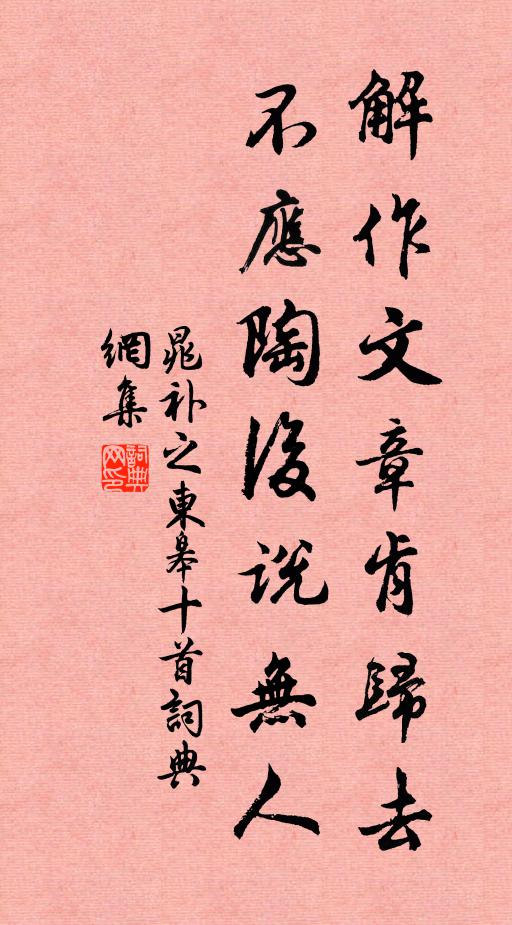 解作文章肯歸去
不應陶後説無人
晁补之東皋十首詞典
網集
詞典
网印